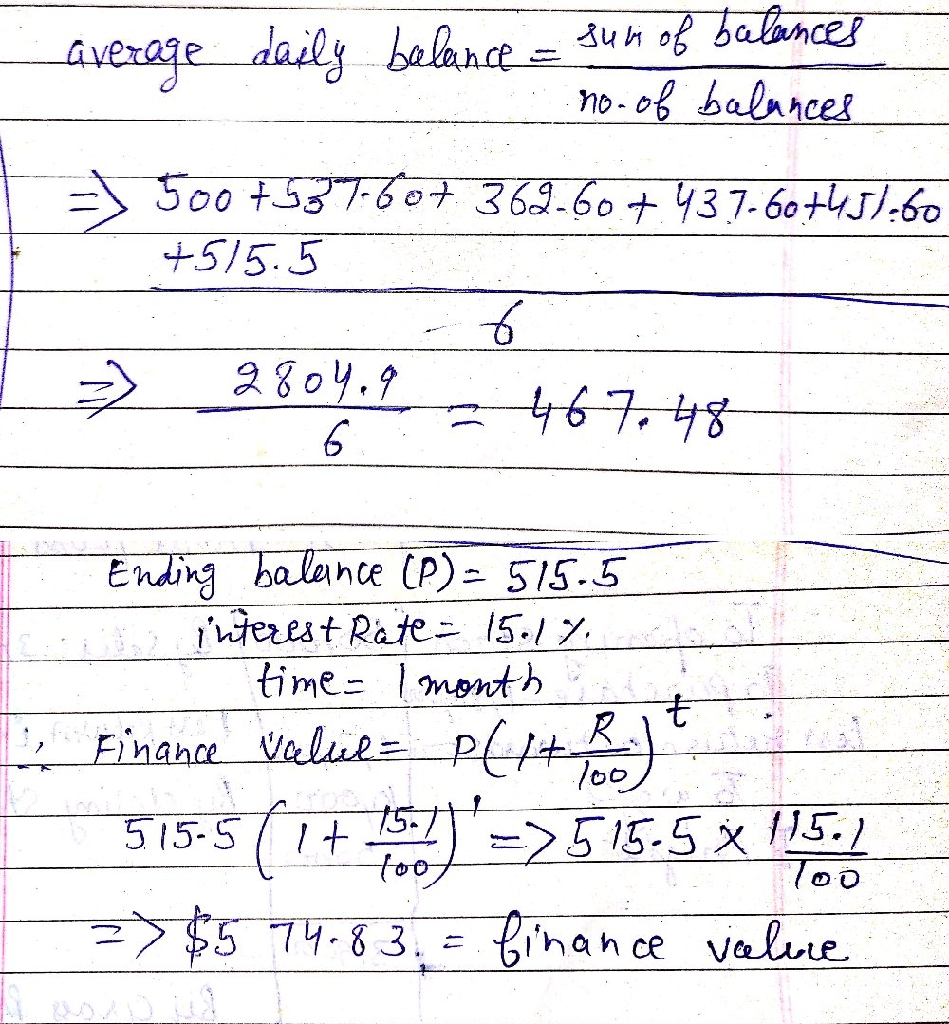 average daily balance = sum of balances / no. of balances
=> 500 + 537.60 + 362.60 + 437.60 + 451.60
+ 515.5
6
=> 2804.9 / 6 = 467.48
Ending balance (P) = 515.5
interest Rate = 15.1 %.
time = 1 month
∴ Finance Value = P(1 + R/100)^t
515.5 (1 + 15.1/100)^1 => 515.5 x 115.1/100
=> $574.83. = finance value